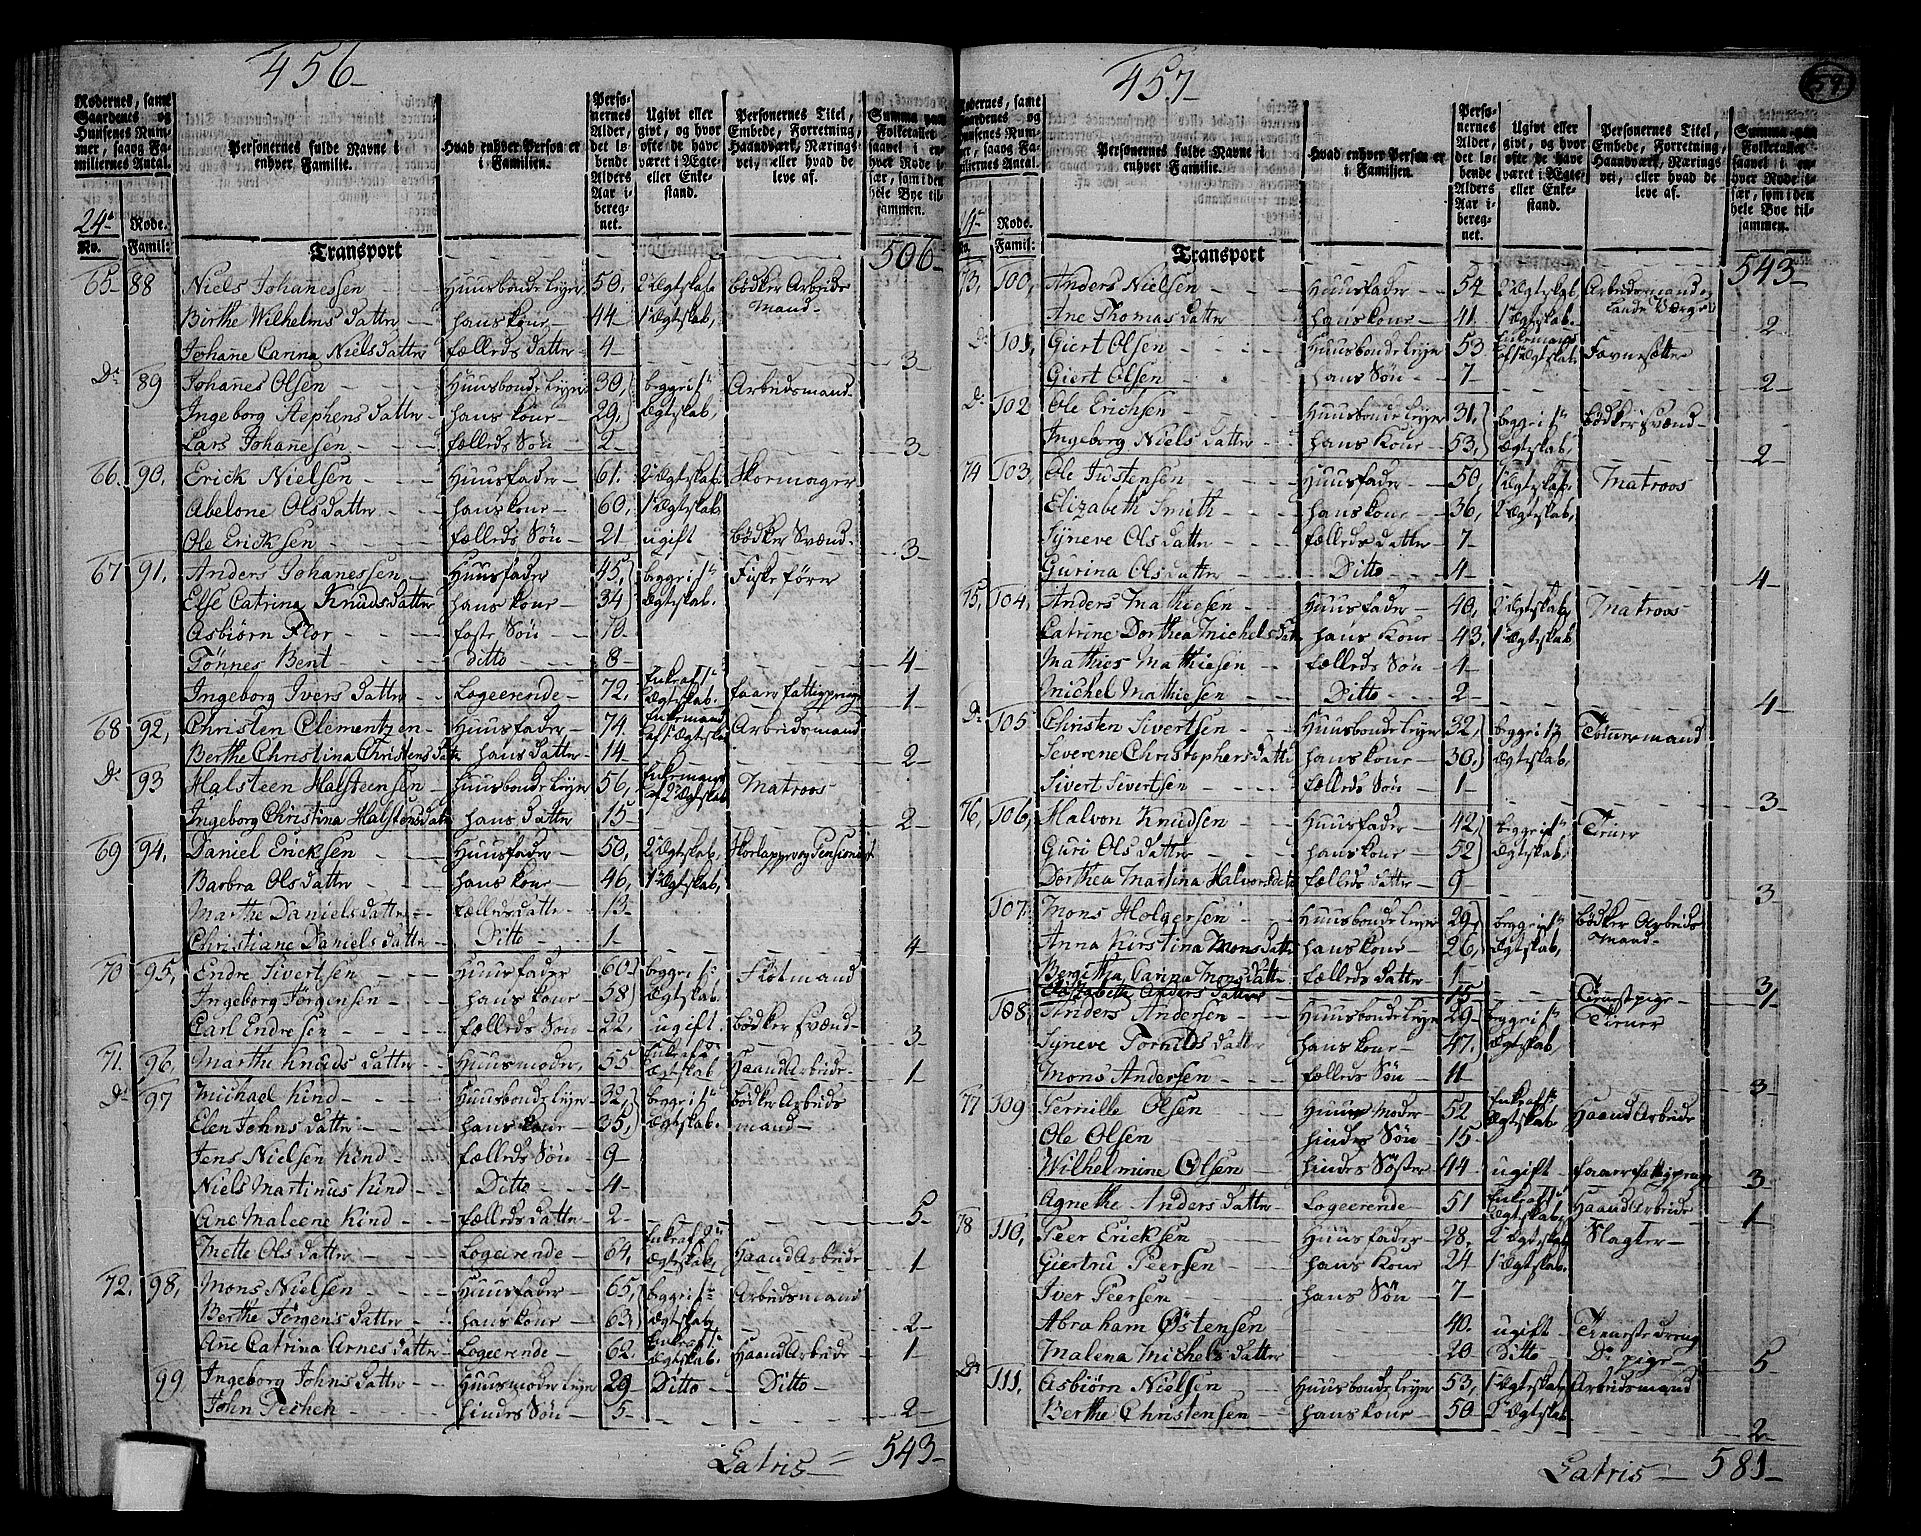 456
Rodernes, samt Gaardenes og Husenes Nummer, saavg Familiernes Antal.
Personernes fulde Navne i enhver Familie.
Hvad enhver Person er i Familien.
Personernes Alder, det løbende Alders Aar iberegnet.
Ugivt eller givt, og hvor ofte de have været i Ægte- eller Enkestand.
Personernes Titel, Embede, Forretning, Haandværk, Næringsvei, eller hvad de leve af.
Summa paa Folketallet saavel i enhver Rode især, som i den hele Bye tilsammen.
24de Rode.
No. Famil:
Transport 506
65 88 Niels Johanessen Huusbonde Leyer 50, 2t Ægtskab Bødker Arbeids
Birthe Wilhelms datter hans kone 44 1t Ægtskab, Mand
Johane Carina Nielsdatter fælleds datter 4 3
Do 89 Johanes Olsen Huusbonde Leyer 30, begge i 1te Arbeidsmand
Ingeborg Stephens datter hans kone 29, Ægtskab,
Lars Johanesen fælleds Søn 2 3
66. 90. Erick Nielsen Huusfader 61. 2t Ægtskab Skoemager
Abelone Olsdatter hans kone 60, 1t Ægtskab
Ole Ericksen fælleds Søn 21 ugift Bødker Svænd 3
67 91, Anders Johanessen Huusfader 45, begge i 1te Fiske fører
Else Catrina Knudsdatter hans kone 34 Ægtskab.
Asbiørn Flor foste Søn 10
Tønnes Bent Ditto 8 4
Ingeborg Ivers datter Logeerende 72, Enke af 1te Ægtskab. faaer fattigpenge 1
68 92, Christen Clementzen Huusfader 74. Enkemand af 1t Ægtskab Arbeidsmand
Berthe Christina Christens datr hans datter 14 2
Do 93 Halsteen Halsteensen Huusbonde Leyer 56, Enkemand af 2t Ægtskab Matroos
Ingeborg Christina Halstensdatr hans datter 15 2
69 94, Daniel Ericksen Huusfader 50, 2t Ægtskab, Skolapper og Pensionist
Barbra Olsdatter hans kone 46, 1t Ægtskab,
Marthe Danielsdatter fælledsdatter 13
Christiane Daniels datter Ditto 1 4
70 95, Endre Sivertsen Huusfader 60 begge i 1te Flotmand
Ingeborg Jørgensen hans kone 58 Ægtskab,
Carl Endresen fælleds Søn 22, ugift. Bødker Svænd 3
71. 96, Marthe Knuds datter Huusmoder, 55 Enke af Ægtskab Haand Arbeide 1
Do 97 Michael Kind Huusbonde Leyer 32, begge i 1te Bødker Arbeids
Elen Johns datter hans kone 35, Ægtskab. mand
Jens Nielsen Kind fælleds Søn 9
Niels Martinus Kind Ditto 4
Ane Maleene Kind fælleds datter 2 5
Mette Ols datter Logeerende 64, Enke af Ægtskab, Haand Arbeide 1
72. 98, Mons Nielsen Huusfader 65, begge i 1te Arbeidsmand
Berthe Jørgens datter hans kone 63, Ægtskab 2
Ane Catrina Arnes datter Logeerende 62. Enke af 1t Ægtskab. Haand Arbeide 1
99 Ingeborg Johns datter Huusmoder Leyer 29 Ditto Ditto
John hindes Søn 5 2
Latris 543
457
57
Rodernes, samt Gaardenes og Husenes Nummer, saavg Familiernes Antal.
Personernes fulde Navne i enhver Familie.
Hvad enhver Person er i Familien.
Personernes Alder, det løbende Alders Aar iberegnet.
Ugivt eller givt, og hvor ofte de have været i Ægte- eller Enkestand.
Personernes Titel, Embede, Forretning, Haandværk, Næringsvei, eller hvad de leve af.
Summa paa Folketallet saavel i enhver Rode især, som i den hele Bye tilsammen.
Rode.
Famil:
Transport 543
73, 100, Anders Nielsen Huusfader 54 2t Ægtskb, Arbeidsmand
Ane Thomas datter hans kone 41. 1t Ægtskab. 2
Do 101, Giert Olsen Huusbonde Leyer 53 Enkemand af 1t Ægtskab. Favnesætter
Giert Olsen hans Søn 7 2
Do 102 Ole Erichsen Huusbonde Leyer 31, begge i 1te Bødker Svænd
Ingeborg Niels datter hans Kone 53, Ægtskab, 2
74 103, Ole Justensen Huusfader 50, 1t Ægtskab. Matroos
Elizabeth Smith hans kone 36, 2t Ægtskab,
Syneve Olsdatter fælleds datter 7
Gurina Olsdatter Ditto 4 4
75, 104, Anders Mathiesen Huusfader 40, 2t Ægtskab, Matroos
Catrine Dorthea Michelsdatr hans Kone 43. 1t Ægtskab
Mathies Mathiesen fælleds Søn 4
Michel Mathiesen Ditto 2 4
Do 105 Christen Sivertsen Huusbonde Leyer 32, begge i 1te Tømmermand
Severene Christophersdattr hans kone 30. Ægtskab,
Sivert Sivertsen fælleds Søn 1 3
76, 106, Halvon Knudsen Huusfader 42, begge i 1te Tiener
Guri Ols datter hans kone 52 Ægtskab,
Dorthea Martina Halvorsdatr fælleds datter 9 3
107. Mons Holgersen Huusbonde Leyer 29, begge i 1te Bødker Arbeids
Anna Kirstina Monsdattr hans kone 26, Ægtskab, Mand
Bergitha Carina Monsdatter fælleds datter 1 3
Elizabeth Anders datter 15 Tienestpige 1
108 Anders Andersen Huusbonde Leyer 29 begge i 1te Tiener
Syneve datter hans kone 47. Ægtskab,
Mons Andersen fælleds Søn 11 3
77 109 Pernille Olsen Huus Moder 52 Enke af 1te Ægtskab Haand Arbeide
Ole Olsen hindes Søn 15
Wilhelmine Olsen hindes Søster 44 ugift faaer fattigpenge 3
Agnethe Anders datter Logeerende 51 Enke af 1te Ægtskab, Haand Arbeide 1
78 110, Peer Ericksen Huusfader 28. 2t Ægtskab Slagter
Giertru Peersen hans Kone 24 1t Ægtskab.
Iver Peersen hans Søn 7
Abraham Østensen 40. ugift Tieneste dreng
Malena Michels datter 20 Ditto Do pige 5
Do 111, Asbiørn Nielsen Huusbonde Leyer 53, 1t Ægtskab Arbeidsmand
Berthe Christensen hans kone 50 2t Ægtskab. 2
Latris 581